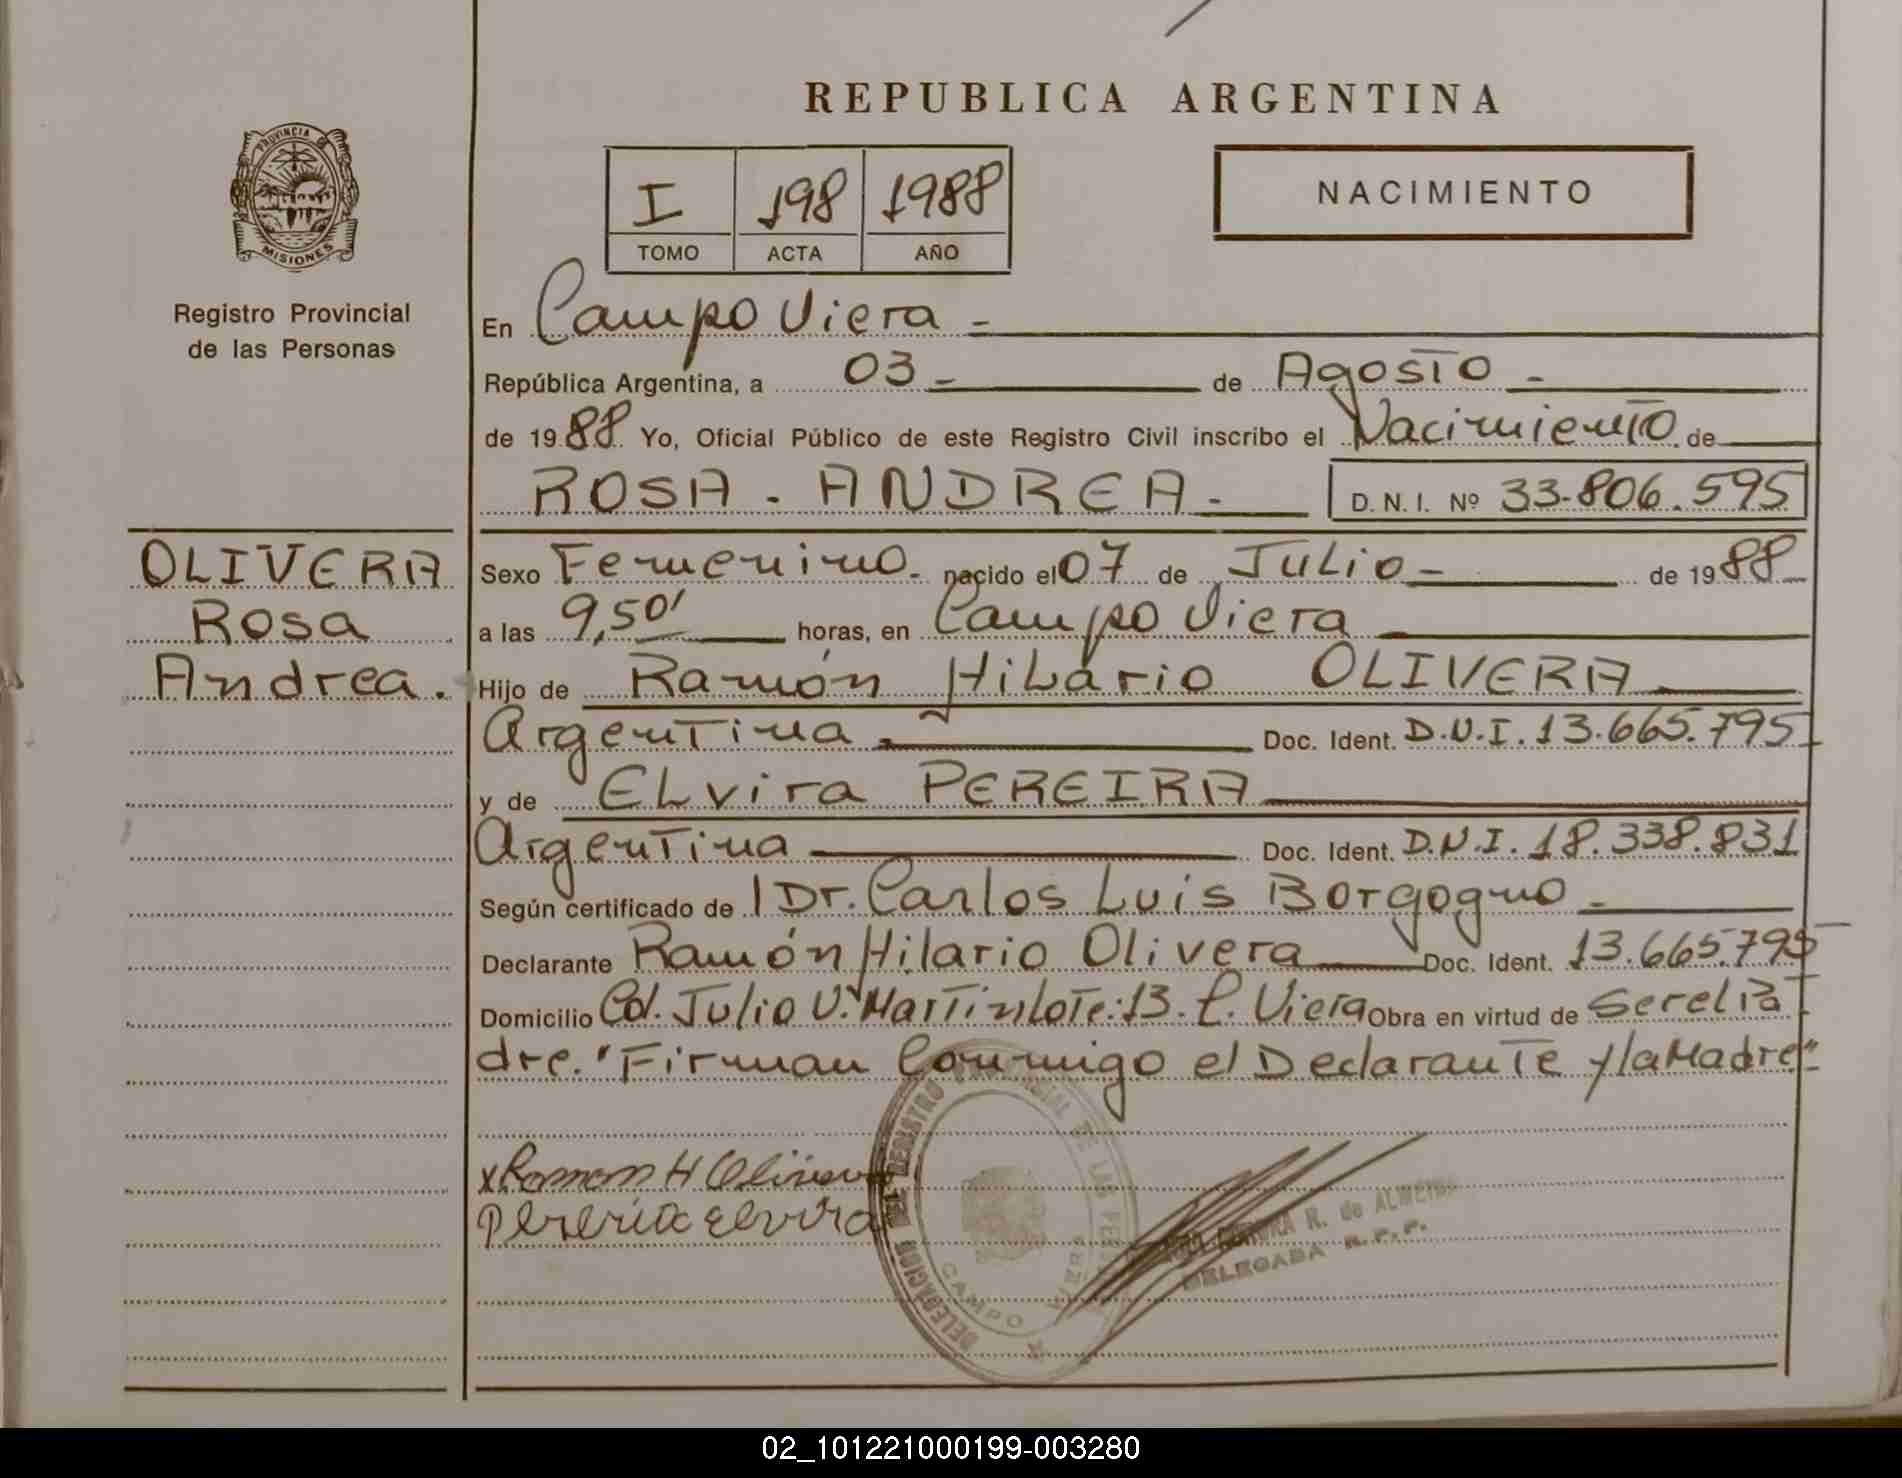 REPUBLICA ARGENTINA
PROVINCIA
MISIONES
I 198 1988
TOMO ACTA AÑO
NACIMIENTO
Registro Provincial
de las Personas
OLIVERA
Rosa
Andrea.
En Campo Viera -
República Argentina, a 03 - de Agosto -
de 1988 Yo, Oficial Público de este Registro Civil inscribo el Nacimiento de
ROSA - ANDREA - D. N. I. Nº 33.806.595
Sexo Femenino. nacido el 07 de Julio - de 1988
a las 9,50' horas, en Campo Viera
Hijo de Ramón Hilario OLIVERA
Argentina Doc. Ident. D.N.I. 13.665.795
y de Elvira PEREIRA
Argentina Doc. Ident. D.N.I. 18.338.831
Según certificado de Dr. Carlos Luis Borgogno -
Declarante Ramón Hilario Olivera Doc. Ident. 13.665.795
Domicilio Col. Julio U. Martin Lote: 13. C. Viera Obra en virtud de Ser el Pa
dre. "Firman Conmigo el Declarante y la Madre"
x Ramon H Olivera
Pereria Elvira
DELEGACION DEL REGISTRO PROVINCIAL DE LAS PERSONAS
CAMPO VIERA
R. de ALMEIDA
DELEGADA R.P.P.
02_101221000199-003280